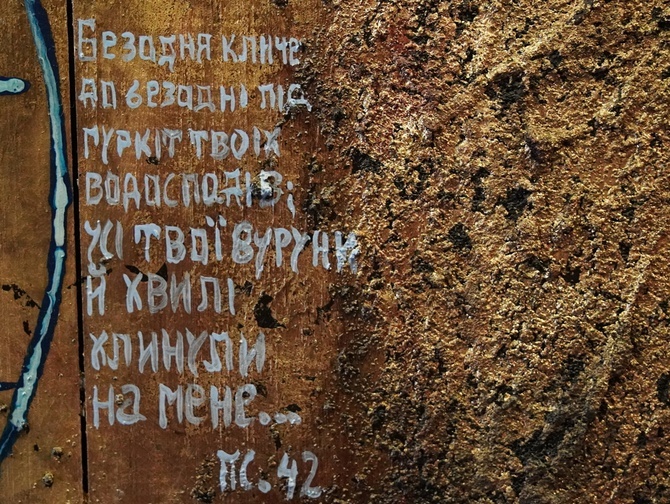 Безодня кличе
до безодні під
гуркіт твоїх
водоспадів;
усі твої буруни
й хвилі
хлинули
на мене...
Пс. 42